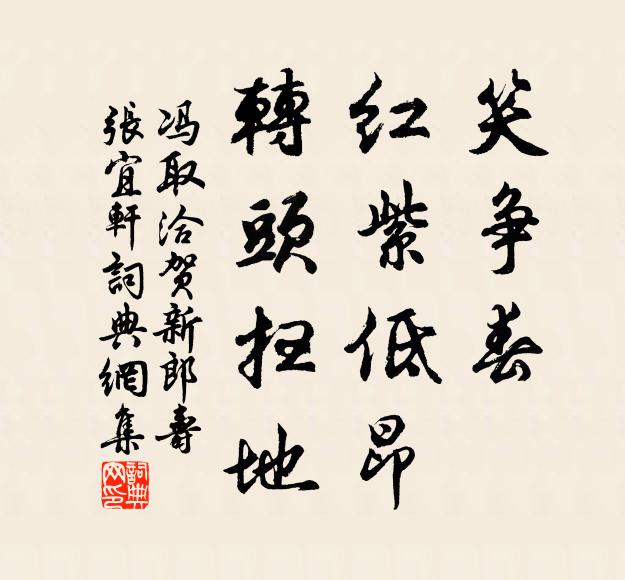 笑争春
红紫低昂
轉頭扫地
冯取洽贺新郎壽
張宜軒詞典網集
詞典
网印